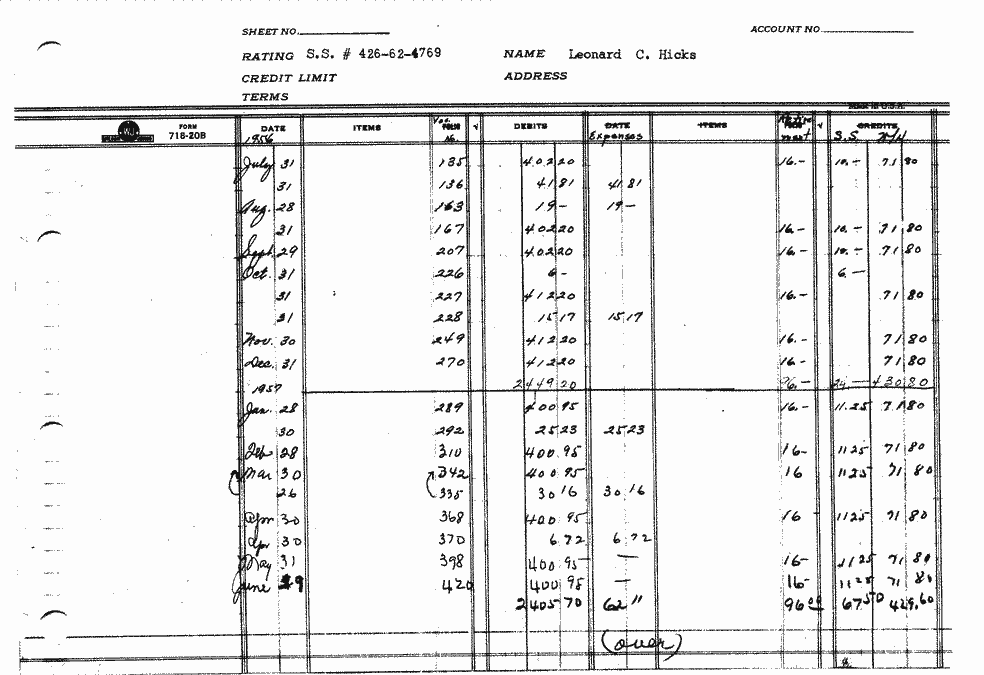 SHEET NO. ACCOUNT NO.
RATING S.S. # 426-62-4769 NAME Leonard C. Hicks
CREDIT LIMIT ADDRESS
TERMS
FORM 718-20B DATE ITEMS Vou. No. √ DEBITS DATE ITEMS √ CREDITS
1956 Expenses S.S. W/H
July 31 135 402 20 16.- 10.- 71 80
31 136 41 81 41 81
Aug. 28 163 19 - 19 -
31 167 402 20 16.- 10.- 71 80
Sept 29 207 402 20 16.- 10.- 71 80
Oct. 31 226 6 - 6. -
31 227 412 20 16.- 71 80
31 228 15 17 15 17
Nov. 30 249 412 20 16.- 71 80
Dec. 31 270 412 20 16 - 71 80
1957 2449 20 96.- 24 - 430 80
Jan. 28 289 400 95 16.- 11.25 71 80
30 292 25 23 25 23
Feb 28 310 400.95 16- 11 25 71 80
Mar 30 342 400 95 16 11 25 71 80
26 335 30 16 30 16
Apr 30 368 400 95 16 11 25 71 80
Apr 30 370 6 72 6 72
May 31 398 400 95 — 16- 11 25 71 80
June 29 420 400 95 — 16- 11 25 71 80
2405 70 62 11 96 00 67 50 429.60
(over)